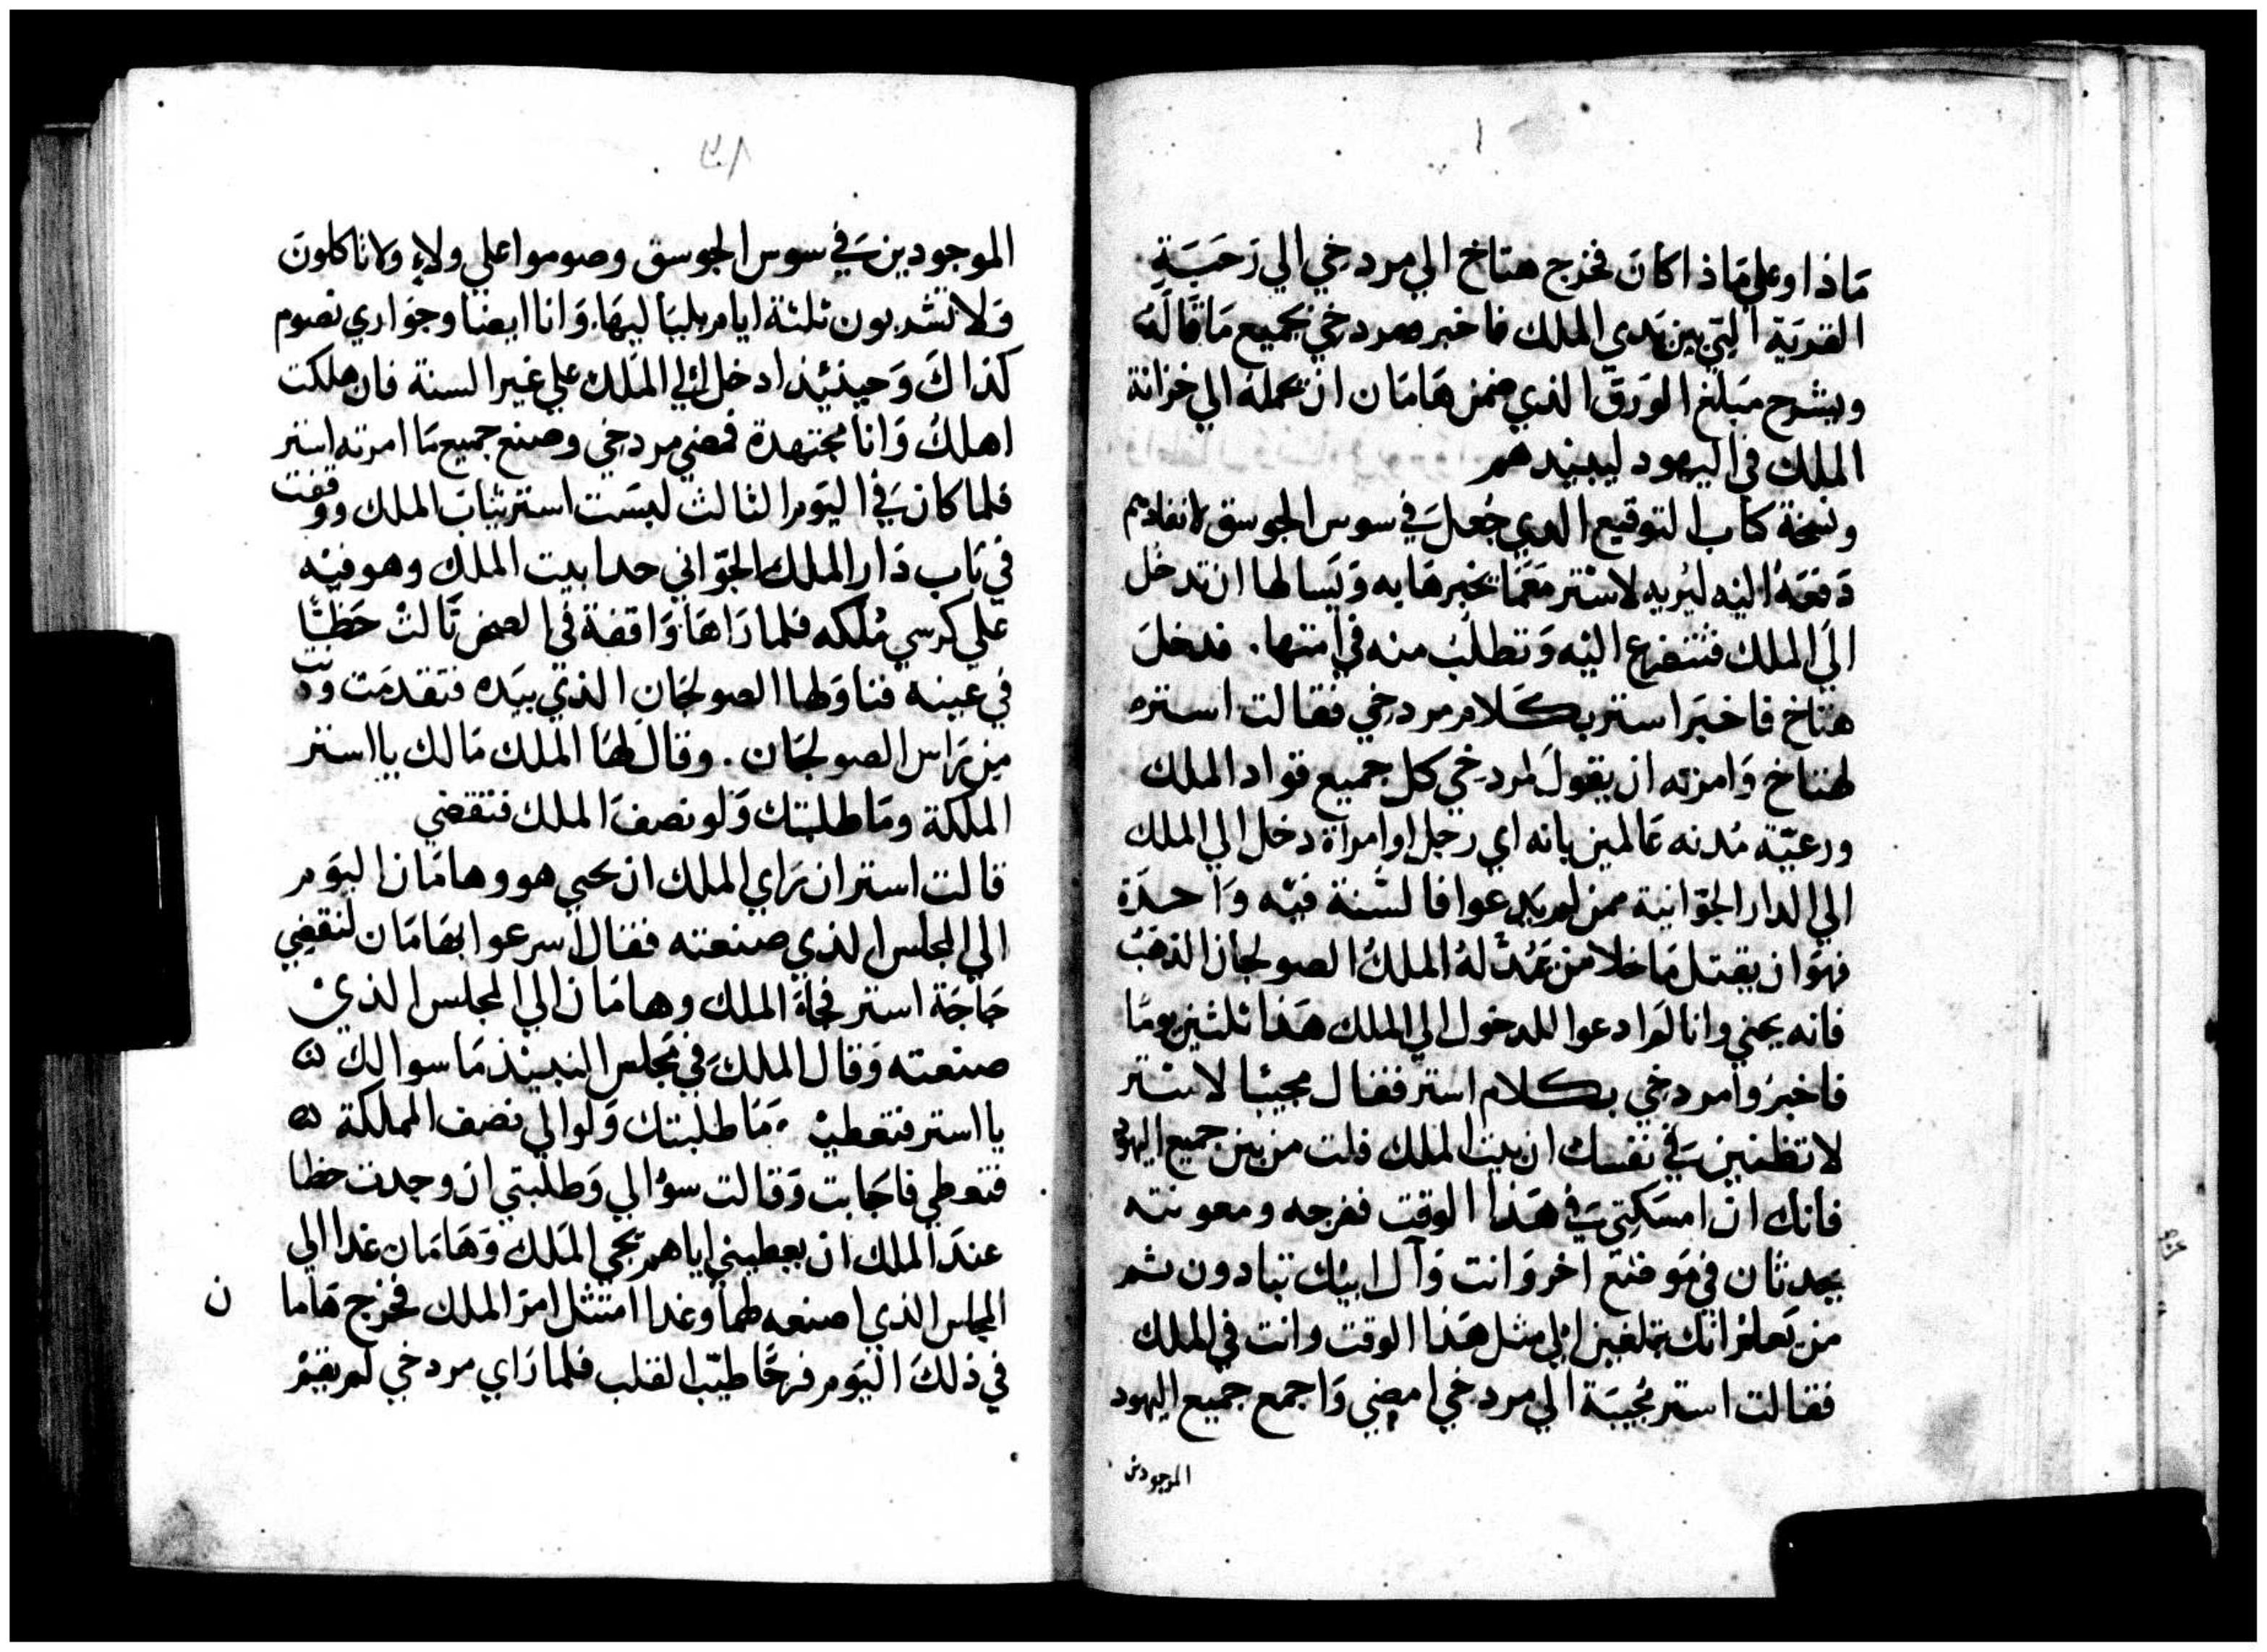 مَاذا وعلي مَاذا كانَ فخرج هتاخ الي مردخي الي رَحبَةِ
القريَة التي بين يَدي الملك فاخبره مردخي بجميع مَا قالهُ
ويشرح مَبلغ الوَرق الذي ضمن هَامَان ان يحمله الي خزانة
الملك في اليهود ليبيدهم
ونسخة كتاب التوقيع الدي جُعلَ في سوس الجوسق لانفادهم
دَفعَهُ اليه ليُريه لاستر مَعمَا يخبرهَا به وَيَسالها ان تدخل
الَي الملك فتتضرع اليْه وَتطلبُ منه في امتها. فدخلَ
هتاخ فاخبَر استر بكَلام مردخي فقالت استر
لهتاخ وَامرته ان يقولَ لمردخي كل جميع قواد الملك
ورعيّة مُدنه عَالمين بانه اي رجل اوامرآة دخل الي الملك
الي الدار الجوّانية ممن لم يدعوا فالسُنة فيْه وَاحدَة
فهوَ ان يقتل مَا خلا من يَمُدّ لهُ الملكُ الصولجان الذهَب
فانه يحيي وانا لم ادعوا للدخول الي الملك هَذا ثلثين يومًا
فاخبرَوا مردخي بكلام استر فقال مجيبًا لاستر
لا تظنين في نفسك ان بيت الملك فلت من بين جميع اليهود
فانك ان امسَكتي في هَذا الوقت ففرجه ومعونته
يحدثان في مَوضع اخر وَانت وَآل ابيك تبادون ثم
من يَعلم انك تبلغين الي مثل هَذا الوقت وانت في الملك
فقالت استر مُجيبَة الي مردخي امضي وَاجمع جميع اليهود
الموجودين
الموجودين في سوس الجوسق وصوموا علي ولاءٍ وَلا تاكلونَ
وَلا تشربون ثلثة ايام بلياليهَا. وَانا ايضا وجوَاري نصوم
كذاكَ وَحينئِذ ادخل الي المَلك علي غير السنة فان هلكت
اهلكُ وَانا مجتهدة فمضي مردخي وصنع جميع مَا امرته استر
فلما كان في اليَوم الثالث لبسَت استر ثيابَ الملك ووقفت
في بَاب دَار الملك الجوّاني حدا بيت الملك وهو فيْه
علي كرسي مُلكه فلما رَاهَا وَاقفة في الصحن نَالتْ حَظًا
في عينه فناوَلها الصولجَان الذي بيَده فتقدمَت ودَنت
من رَاس الصولجَان. وقال لهَا المَلك مَالك يا استر
الملكة ومَا طلبتك وَلو نصفَ الملك فتقضي
قالت استر ان رَاي الملك ان يحيي هو وهامَان اليوَم
الي المجلس الذي صنعته فقال اسرعوا بهَامَان لنقضي
حَاجَة استر فجاءَ الملك وهامَان الي المجلس الذي
صنعته وَقال الملكَ في مَجلس النبيذ مَا سوالك
يا استر فتعطيْ وَمَا طلبتك وَلوالي نصف المملكة
فتعطي فاجَابت وَقالت سؤالي وَطلبتي ان وجدت حظا
عندَ الملك ان يعطيني اياهم يجي المَلك وَهَامَان غدا الي
المجلس الذي اصنعه لهمَا وغدا امتثل امرَ الملك فخرج هَاما ن
في ذلكَ اليَوم فرحًا طيّب القلب فلما رَاي مردخي لم يقمْ